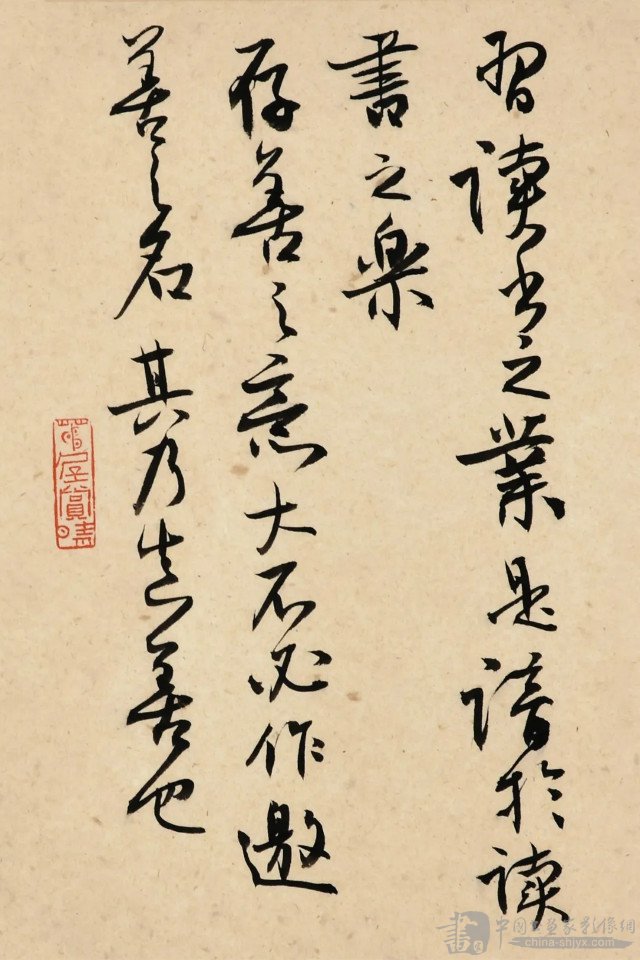 習读书之業是諳於读
書之楽
存善之意大不必作邀
善之名其乃真善也
中国书画家影像网
www.china-shjyx.com